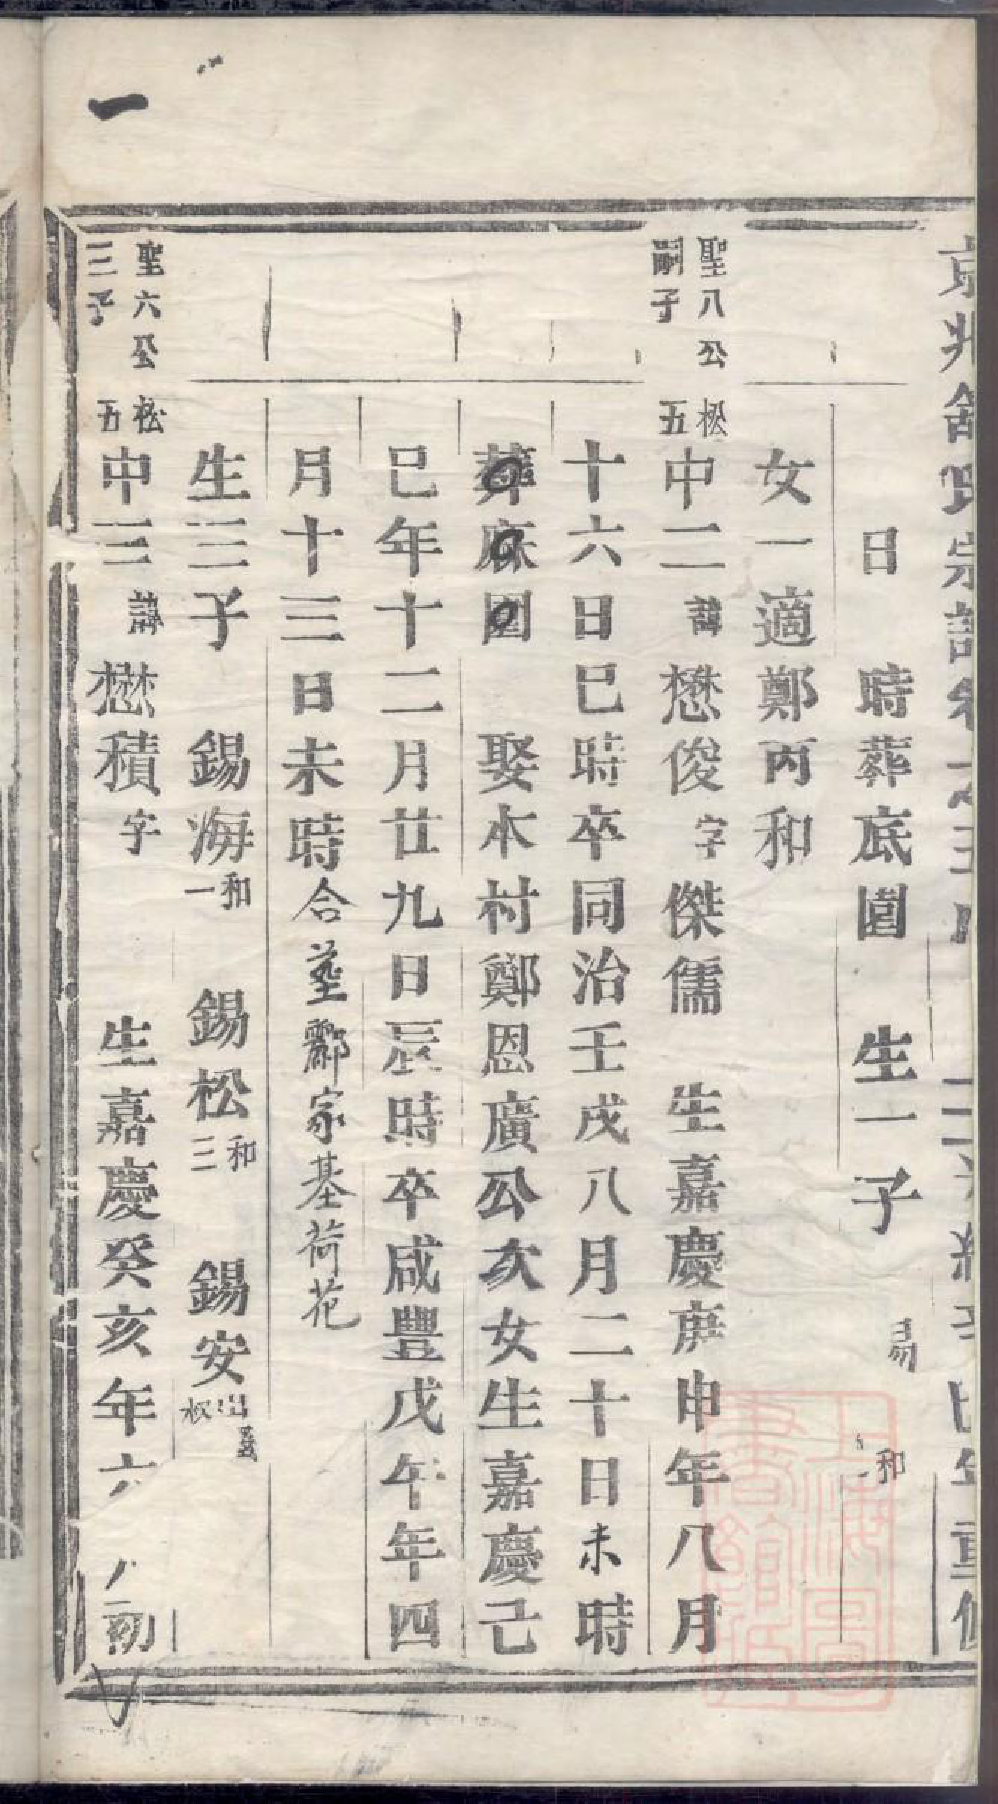 日 時葬底園 生一子 和
女一適鄭丙和
聖八公嗣子 松五 中二 諱 懋俊 字 傑儒 生嘉慶庚申年八月
十六日巳時卒同治壬戌八月二十日未時
葬麻園 娶木村鄭恩廣公次女生嘉慶己
巳年十二月廿九日辰時卒咸豐戊午年四
月十三日未時合塟酈家基荷花
生三子 錫海 和一 錫松 和三 錫安
聖六公三子 松五 中三 諱 懋積 字 生嘉慶癸亥年六 初
一